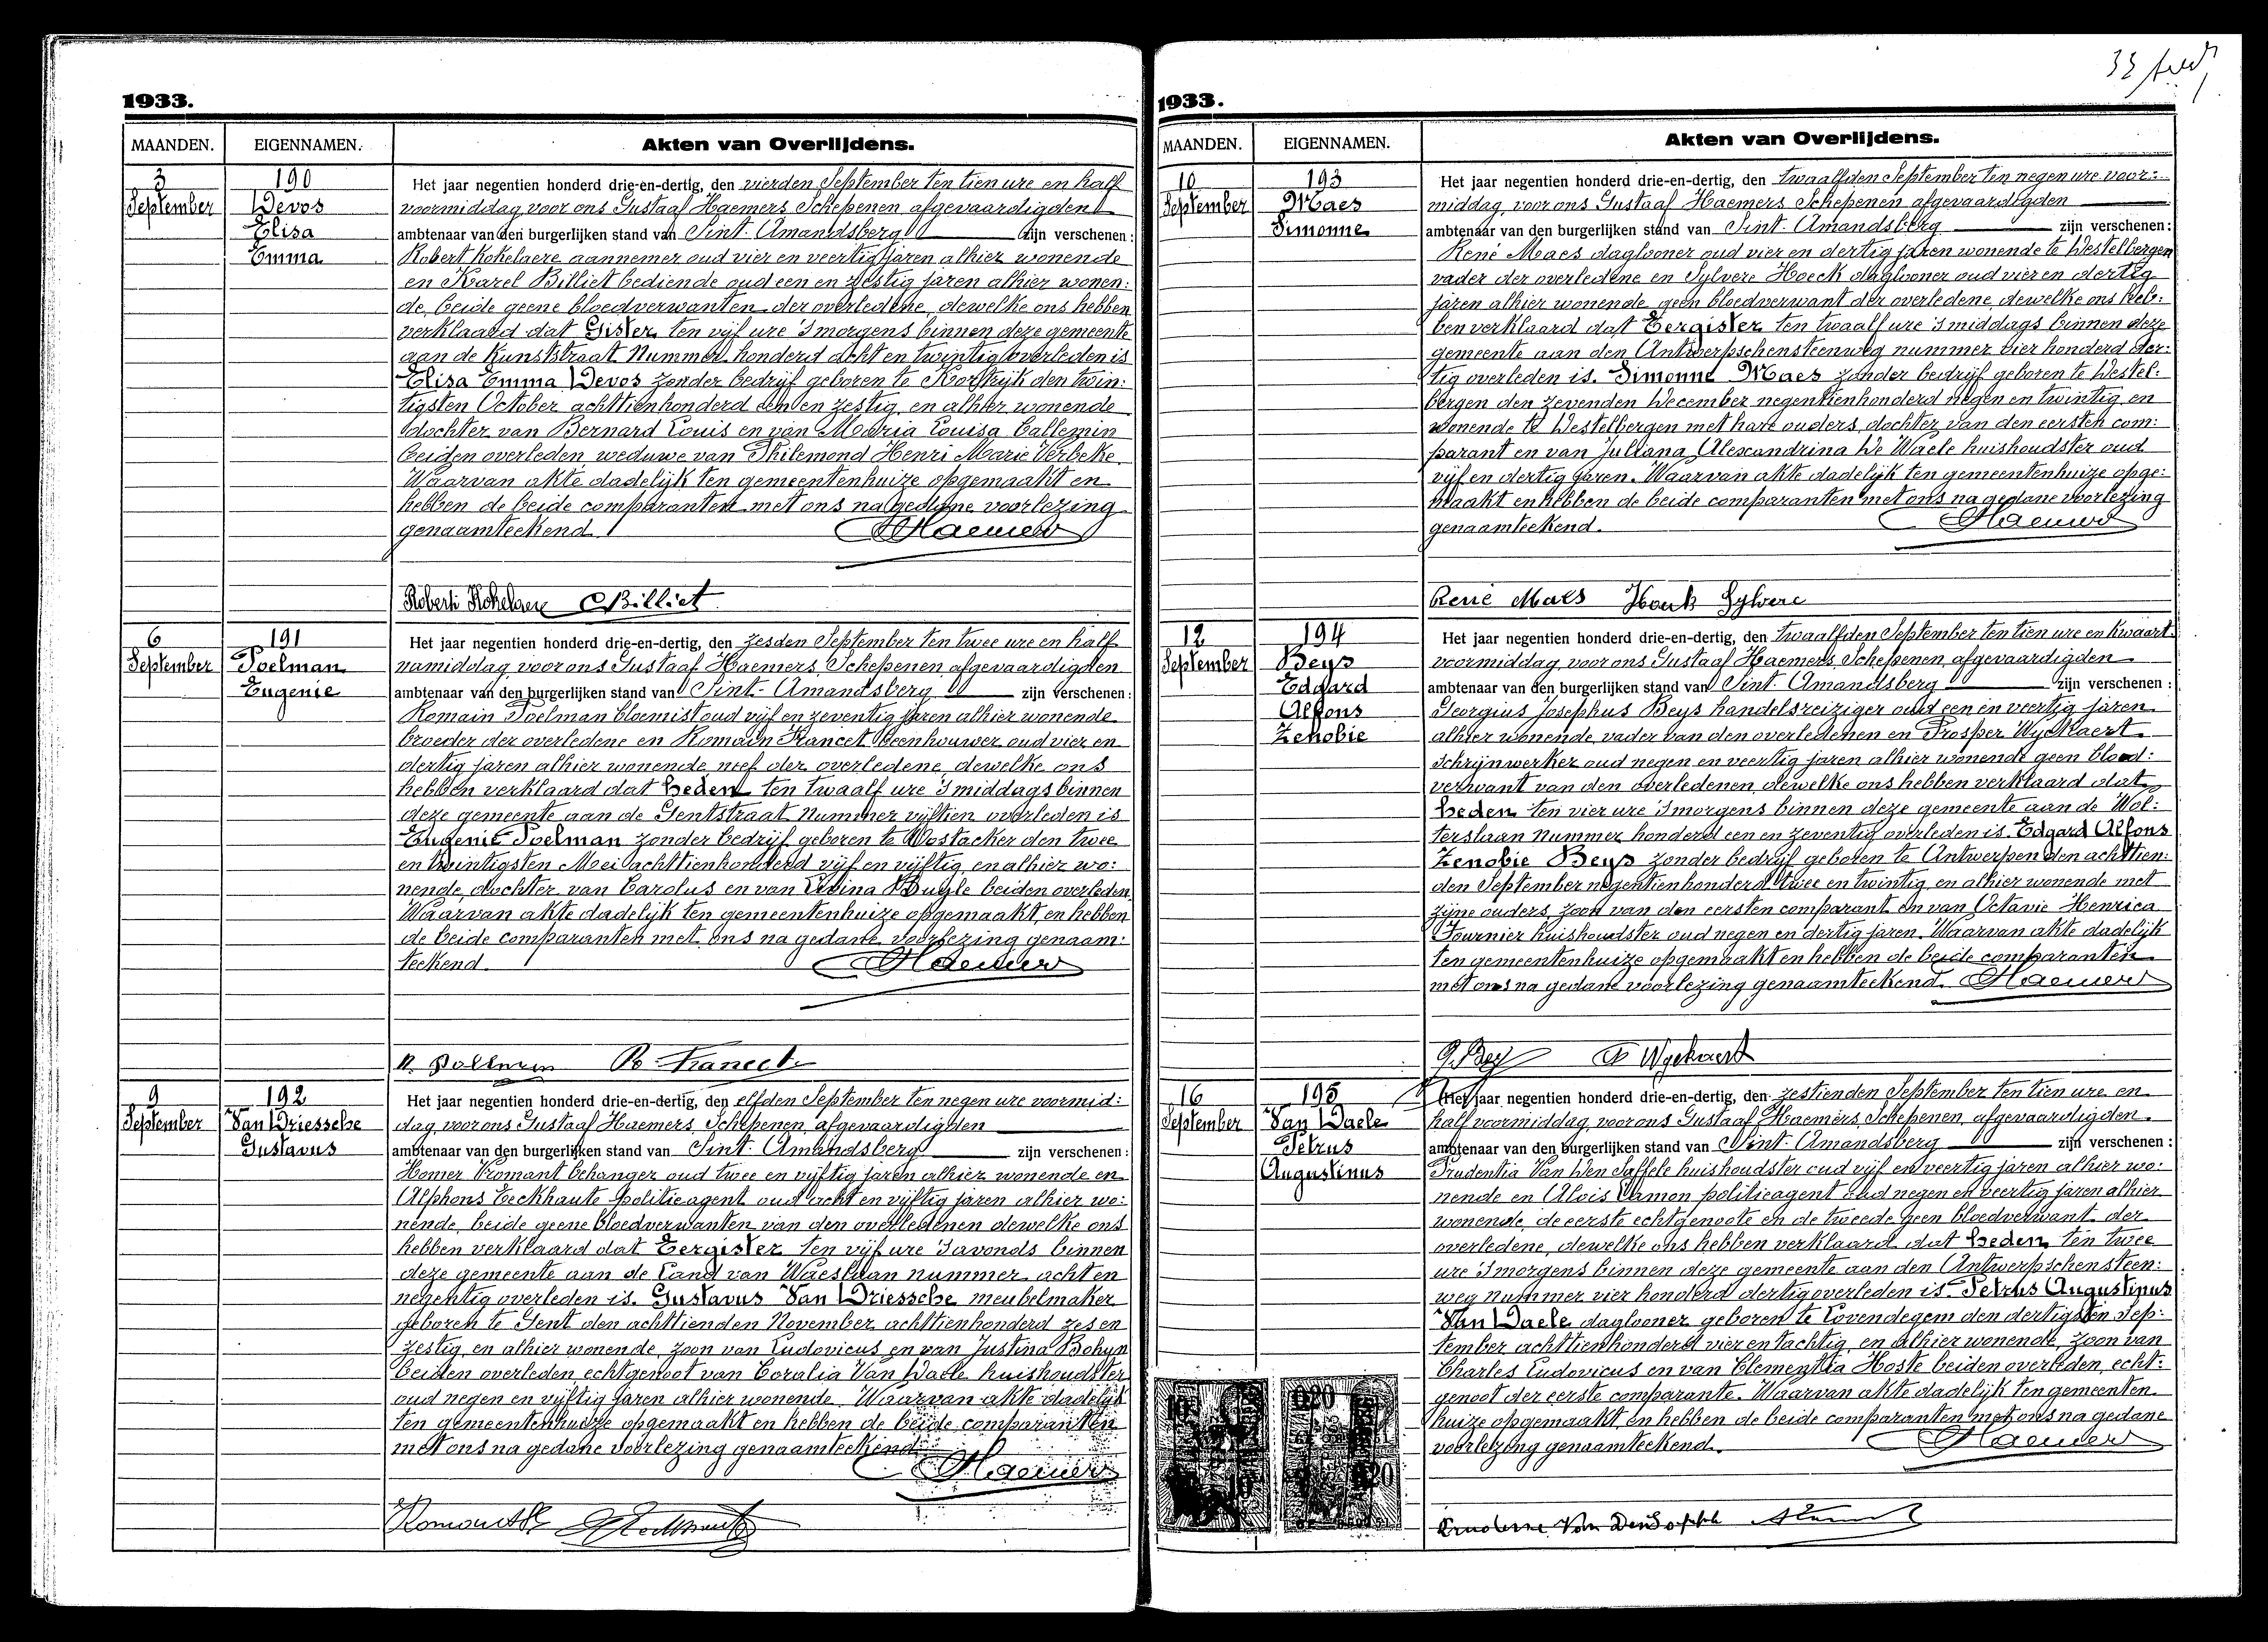 1933.
MAANDEN. EIGENNAMEN. Akten van Overlijdens.
3 190 Het jaar negentien honderd drie-en-dertig, den vierden September ten tien ure en half
September Devos voormiddag voor ons Gustaaf Haemers Schepenen afgevaardigden
Elisa ambtenaar van den burgerlijken stand van Sint-Amandsberg zijn verschenen:
Emma Robert Kokelaere aannemer oud vier en veertig jaren alhier wonende
en Karel Billiet bediende oud een en zestig jaren alhier wonen:
de, beide geene bloedverwanten der overledene, dewelke ons hebben
verklaard dat Gister ten vijf ure 's morgens binnen deze gemeente
aan de Kunststraat Nummer honderd acht en twintig overleden is
Elisa Emma Devos zonder bedrijf geboren te Kortrijk den twin:
tigsten October achttienhonderd een en zestig, en alhier wonende
dochter van Bernard Louis en van Maria Louisa Callemin
beiden overleden, weduwe van Philemond Henri Marie Verbeke.
Waarvan akte dadelijk ten gemeentenhuize opgemaakt en
hebben de beide comparanten met ons na gedane voorlezing
genaamteekend. GHaemers
Robert Kokelaere CBilliet
6 191 Het jaar negentien honderd drie-en-dertig, den zesden September ten twee ure en half
September Poelman namiddag, voor ons Gustaaf Haemers, Schepenen, afgevaardigden
Eugenie ambtenaar van den burgerlijken stand van Sint-Amandsberg zijn verschenen:
Romain Poelman bloemist oud vijf en zeventig jaren alhier wonende
broeder der overledene en Romain Francet beenhouwer oud vier en
dertig jaren alhier wonende neef der overledene, dewelke ons
hebben verklaard dat heden ten twaalf ure 's middags binnen
deze gemeente aan de Gentstraat Nummer vijftien overleden is
Eugenie Poelman zonder bedrijf geboren te Oostacker den twee
en twintigsten Mei achttienhonderd vijf en vijftig, en alhier wo:
nende, dochter van Carolus en van Buyle beiden overleden.
Waarvan akte dadelijk ten gemeentenhuize opgemaakt, en hebben
de beide comparanten met ons na gedane voorlezing genaam:
teekend. GHaemers
R. Poelman R. Francet
9 192 Het jaar negentien honderd drie-en-dertig, den elfden September ten negen ure voormid:
September Van Driessche dag, voor ons Gustaaf Haemers, Schepenen, afgevaardigden
Gustavus ambtenaar van den burgerlijken stand van Sint-Amandsberg zijn verschenen:
Homer Vromant behanger oud twee en vijftig jaren alhier wonende en
Alphons Eeckhaute politieagent oud acht en vijftig jaren alhier wo:
nende, beide geene bloedverwanten van den overledenen dewelke ons
hebben verklaard dat Eergister ten vijf ure 's avonds binnen
deze gemeente aan de Land van Waeslaan nummer acht en
negentig overleden is. Gustavus Van Driessche meubelmaker
geboren te Gent den achttienden November achttienhonderd zes en
zestig, en alhier wonende, zoon van Ludovicus en van Justina Bohyn
beiden overleden, echtgenoot van Coralia Van Daele huishoudster
oud negen en vijftig jaren alhier wonende. Waarvan akte dadelijk
ten gemeentenhuize opgemaakt en hebben de beide comparanten
met ons na gedane voorlezing genaamteekend.
GHaemers
1933.
MAANDEN. EIGENNAMEN. Akten van Overlijdens.
10 193 Het jaar negentien honderd drie-en-dertig, den twaalfden September ten negen ure voor:
September Maes middag, voor ons Gustaaf Haemers Schepenen afgevaardigden
Simonne ambtenaar van den burgerlijken stand van Sint-Amandsberg zijn verschenen:
René Maes daglooner oud vier en dertig jaren wonende te Destelbergen
vader der overledene en Sylvere Hoeck daglooner oud vier en dertig
jaren alhier wonende geen bloedverwant der overledene dewelke ons heb:
ben verklaard dat Eergister ten twaalf ure 's middags binnen deze
gemeente aan den Antwerpschensteenweg nummer vier honderd der:
tig overleden is. Simonne Maes zonder bedrijf geboren te Destel:
bergen den zevenden December negentienhonderd negen en twintig en
wonende te Destelbergen met hare ouders, dochter van den eersten com:
parant en van Juliana Alexandrina De Waele huishoudster oud
vijf en dertig jaren. Waarvan akte dadelijk ten gemeentenhuize opge:
maakt en hebben de beide comparanten met ons na gedane voorlezing
genaamteekend. GHaemers
René Maes Houk Sylvere
12 194 Het jaar negentien honderd drie-en-dertig, den twaalfden September ten tien ure en kwaart
September Beys voormiddag, voor ons Gustaaf Haemers, Schepenen, afgevaardigden
Edgard ambtenaar van den burgerlijken stand van Sint-Amandsberg zijn verschenen:
Alfons Georgius Josephus Beys handelsreiziger oud een en veertig jaren
Zenobie alhier wonende, vader van den overledenen en Prosper Wyckaert
schrijnwerker oud negen en veertig jaren alhier wonende geen bloed:
verwant van den overledenen, dewelke ons hebben verklaard dat
heden ten vier ure 's morgens binnen deze gemeente aan de Wol:
terslaan nummer honderd een en zeventig overleden is. Edgard Alfons
Zenobie Beys zonder bedrijf geboren te Antwerpen den achttien:
den September negentienhonderd twee en twintig, en alhier wonende met
zijne ouders, zoon van den eersten comparant en van Octavie Henrica
Fournier huishoudster oud negen en dertig jaren. Waarvan akte dadelijk
ten gemeentenhuize opgemaakt en hebben de beide comparanten
met ons na gedane voorlezing genaamteekend. GHaemers
G. Beys P Wyckaert
16 195 Het jaar negentien honderd drie-en-dertig, den zestienden September ten tien ure en
September Van Daele half voormiddag, voor ons Gustaaf Haemers, Schepenen, afgevaardigden
Petrus ambtenaar van den burgerlijken stand van Sint-Amandsberg zijn verschenen:
Augustinus Prudentia Van Den Saffele huishoudster oud vijf en veertig jaren alhier wo:
nende en Alois Lamon politieagent oud negen en veertig jaren alhier
wonende, de eerste echtgenoote en de tweede geen bloedverwant der
overledene, dewelke ons hebben verklaard dat heden ten twee
ure 's morgens binnen deze gemeente aan den Antwerpschensteen:
weg nummer vier honderd dertig overleden is. Petrus Augustinus
Van Daele daglooner geboren te Lovendegem den dertigsten Sep:
tember achttienhonderd vier en tachtig, en alhier wonende, zoon van
Charles Ludovicus en van Clementia Hoste beiden overleden, echt:
genoot der eerste comparante. Waarvan akte dadelijk ten gemeenten
huize opgemaakt en hebben de beide comparanten met ons na gedane
voorlezing genaamteekend. GHaemers